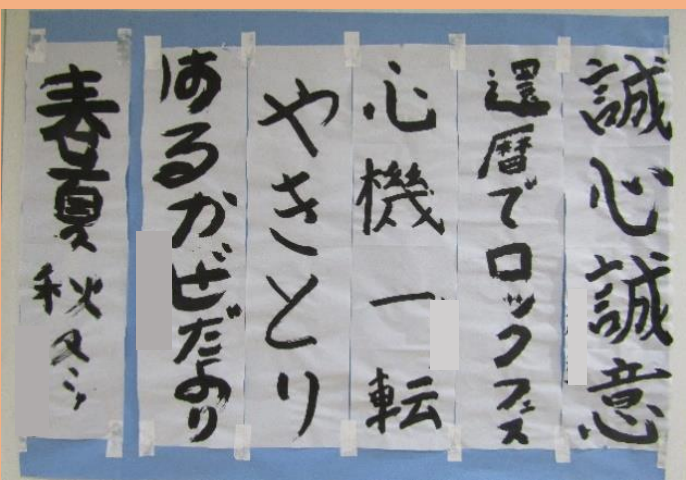 誠心誠意
還暦でロックフェス
心機一転
やきとり
はるかぜだより
春夏秋冬